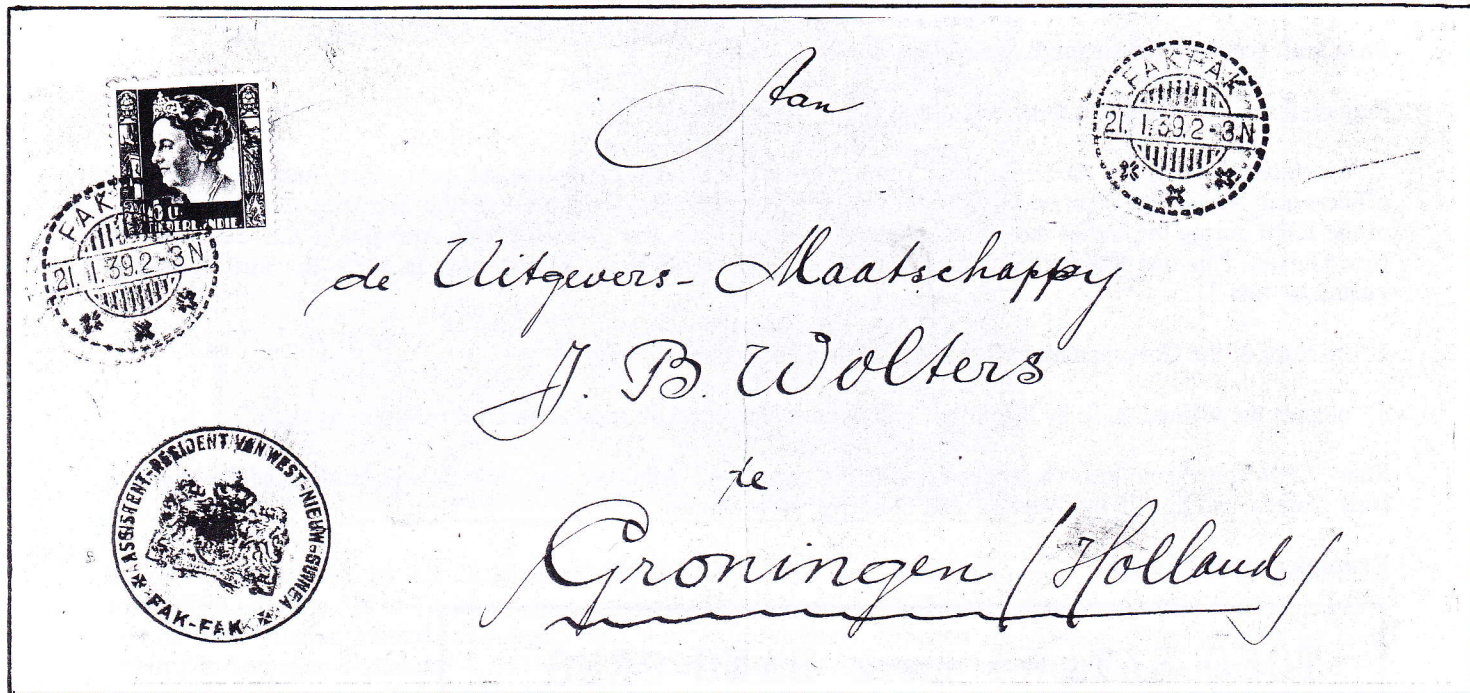 Aan
FAKFAK
21. 1.39.2-3N
NED.INDIE
FAK
21. 1.39.2-3N
de Uitgevers-Maatschappy
J. B. Wolters
te
Groningen (Holland)
ASSISTENT-RESIDENT VAN WEST-NIEUW-GUINEA
FAK-FAK